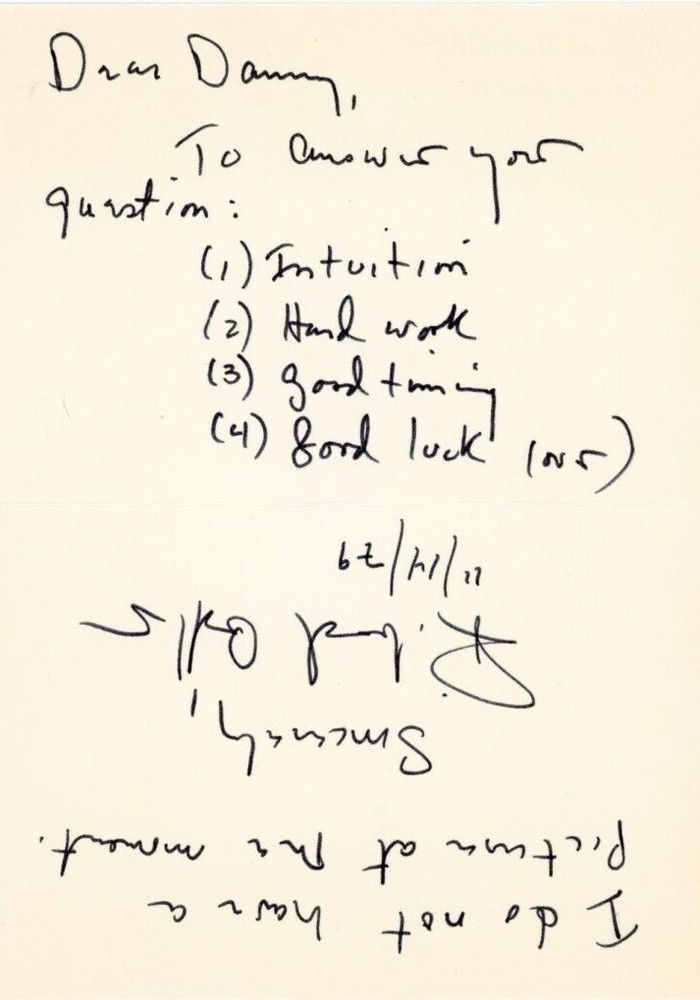 Dear Danny,
To answer your
question:
(1) Intuition
(2) Hard work
(3) Good timing
(4) Good luck (over)
I do not have a
picture at the moment.
Sincerely,
11/14/79